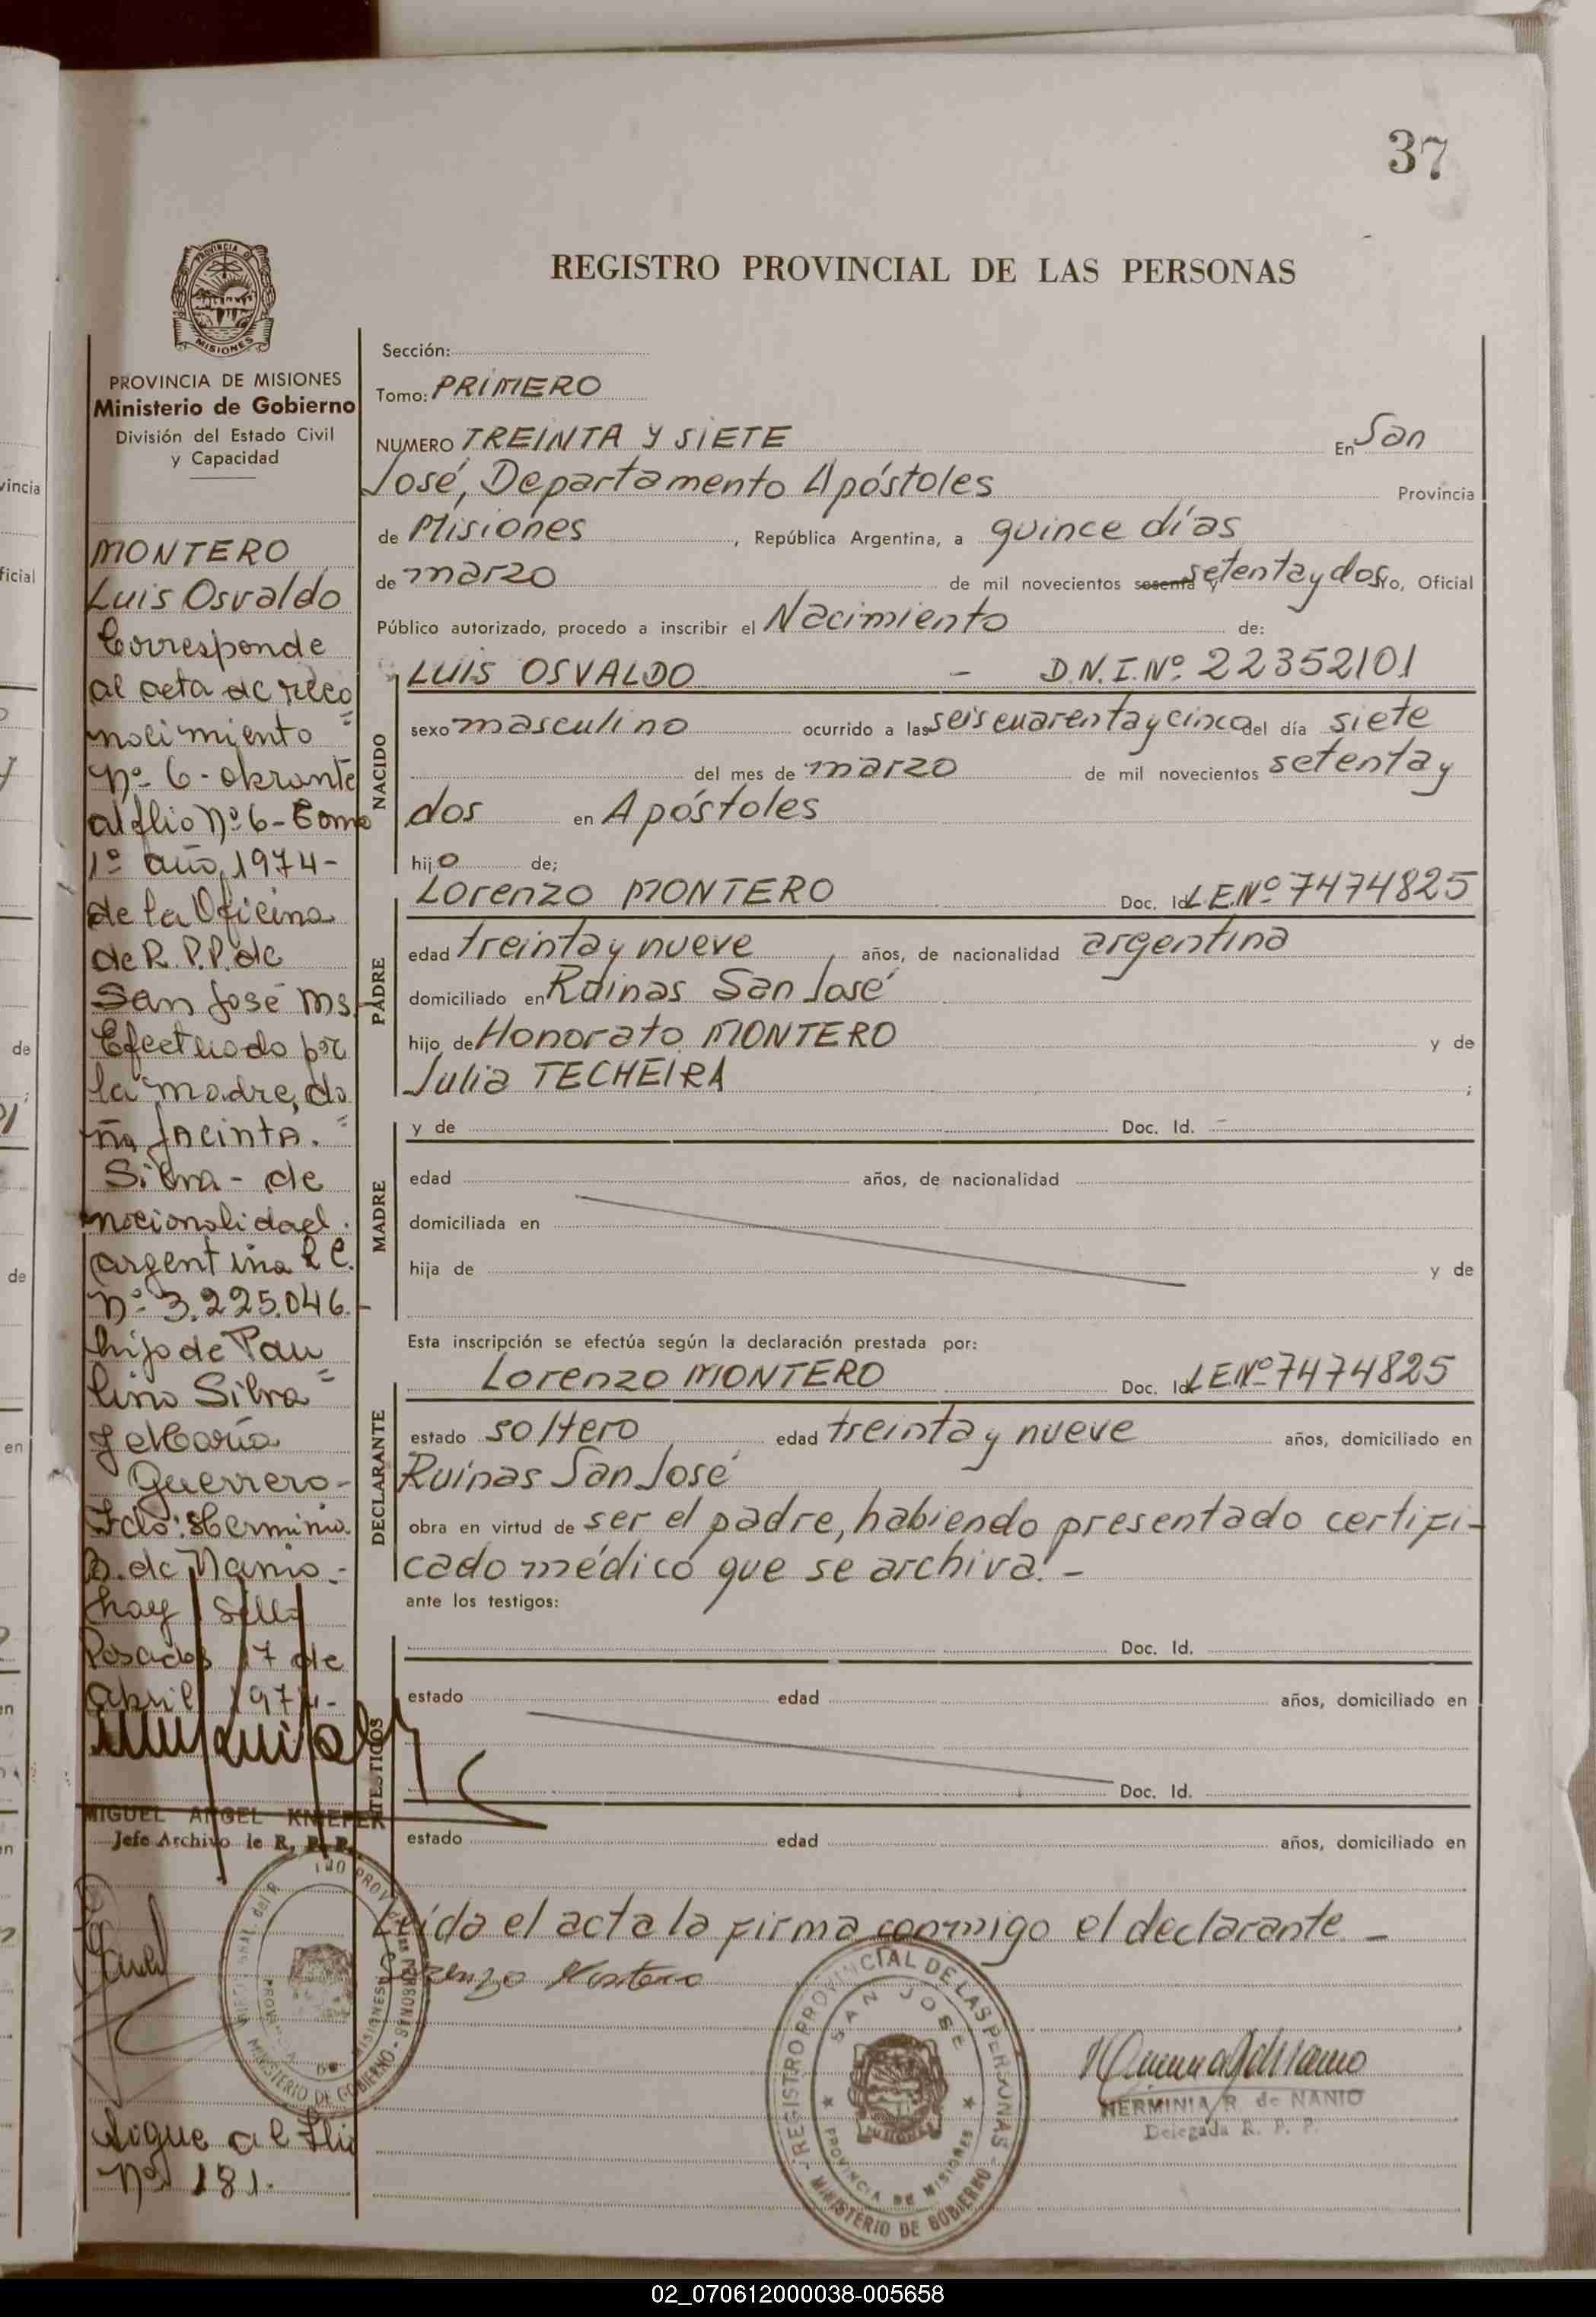 37
REGISTRO PROVINCIAL DE LAS PERSONAS
PROVINCIA DE MISIONES
Ministerio de Gobierno
División del Estado Civil
y Capacidad
MONTERO
Luis Osvaldo
Corresponde
al acta de reco
nocimiento
Nº 6 - obrante
al flio Nº 6 - Tomo
1º año, 1974 -
de la Oficina
de R.P.P. de
San José Ms.
Efectuado por
la madre, do
ña JACINTA.
Silva - de
nacionalidad
argentina L C.
Nº 3.225.046.-
hijo de Pau
lino Silva
y María
Guerrero -
Fdo: Herminia
R. de Nanio -
hay sello
Posadas 17 de
abril 1974 -
MIGUEL ANGEL KNIEPER
Jefe Archivo de R. P. P.
Sigue al flio
Nº 181.
Sección:
Tomo: PRIMERO
NUMERO TREINTA Y SIETE En San
José, Departamento Apóstoles Provincia
de Misiones, República Argentina, a quince días
de marzo de mil novecientos sesenta y setenta y dos yo, Oficial
Público autorizado, procedo a inscribir el Nacimiento de:
NACIDO
LUIS OSVALDO - D.N.I.Nº 22352101
sexo masculino ocurrido a las seis cuarenta y cinco del día siete
del mes de marzo de mil novecientos setenta y
dos en Apóstoles
hijo de;
PADRE
Lorenzo MONTERO Doc. Id. L.E.Nº 7474825
edad treinta y nueve años, de nacionalidad argentina
domiciliado en Ruinas San José
hijo de Honorato MONTERO y de
Julia TECHEIRA ;
MADRE
y de Doc. Id. -
edad años, de nacionalidad
domiciliada en
hija de y de
Esta inscripción se efectúa según la declaración prestada por:
DECLARANTE
Lorenzo MONTERO Doc. Id. LENº 7474825
estado soltero edad treinta y nueve años, domiciliado en
Ruinas San José
obra en virtud de ser el padre, habiendo presentado certifi-
cado médico que se archiva. -
ante los testigos:
TESTIGOS
Doc. Id.
estado edad años, domiciliado en
Doc. Id.
estado edad años, domiciliado en
Leída el acta la firma conmigo el declarante -
Lorenzo Montero
REGISTRO PROVINCIAL DE LAS PERSONAS
SAN JOSE
PROVINCIA DE MISIONES
MINISTERIO DE GOBIERNO
HERMINIA R. de NANIO
Delegada R. P. P.
02_070612000038-005658